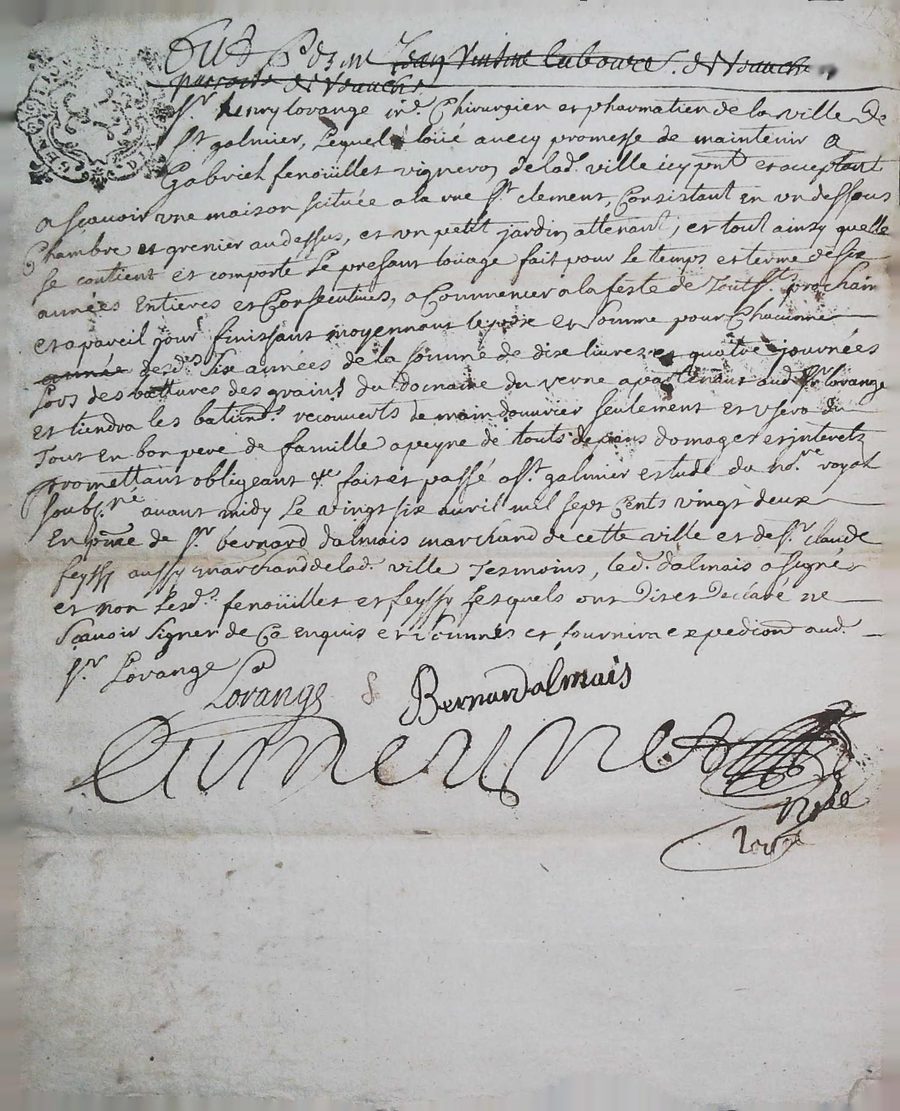 Jean laboure. de
parroisse de
Sr. henry lorange Chirurgien et pharmatien de la ville de
St galmier, Lequel a loüé avecq promesse de maintenir a
Gabriel fenoüillet vigneron de lad. ville icy pnt. et acceptant
a scavoir vne maison scituée a la rue St. clement, Consistant en vn dessous
Chambre et grenier au dessus, et vn petit jardin attenant, et tout ainsy quelle
se contient et comporte Le present loüage fait pour Le temps et terme de six
années Entieres et Consecutives, a Commencer a la feste de Toutsts. prochain
et a pareil jour finissant moyennant le prix et somme pour Chacune
année desds. Six années de la somme de dixe livres, et quatre journées
Lors des battures des grains du domaine du verne apartenant aud Sr. lorange
Et tiendra les batimts. recouverts de main douvrier seulement et vsera du
Tout en bon pere de famille a peyne de touts depens domages et interets
promettant obligeant &c fait et passé a St. galmier estude du no.re royal
soubs.né avant midy Le vingt six avril mil sept Cents vingt deux
En pnce de Sr. bernard dalmais marchand de cette ville et de Sr. claude
feyssy aussy marchand de lad. ville Tesmoins, led. dalmais a signé
et non Lesd. fenoüillet et feyssy Lesquels ont dit et declaré ne
Scavoir Signer de Ce enquis et sommés et fournira expediond aud.
Sr. Lorange
Lorange Bernard almais